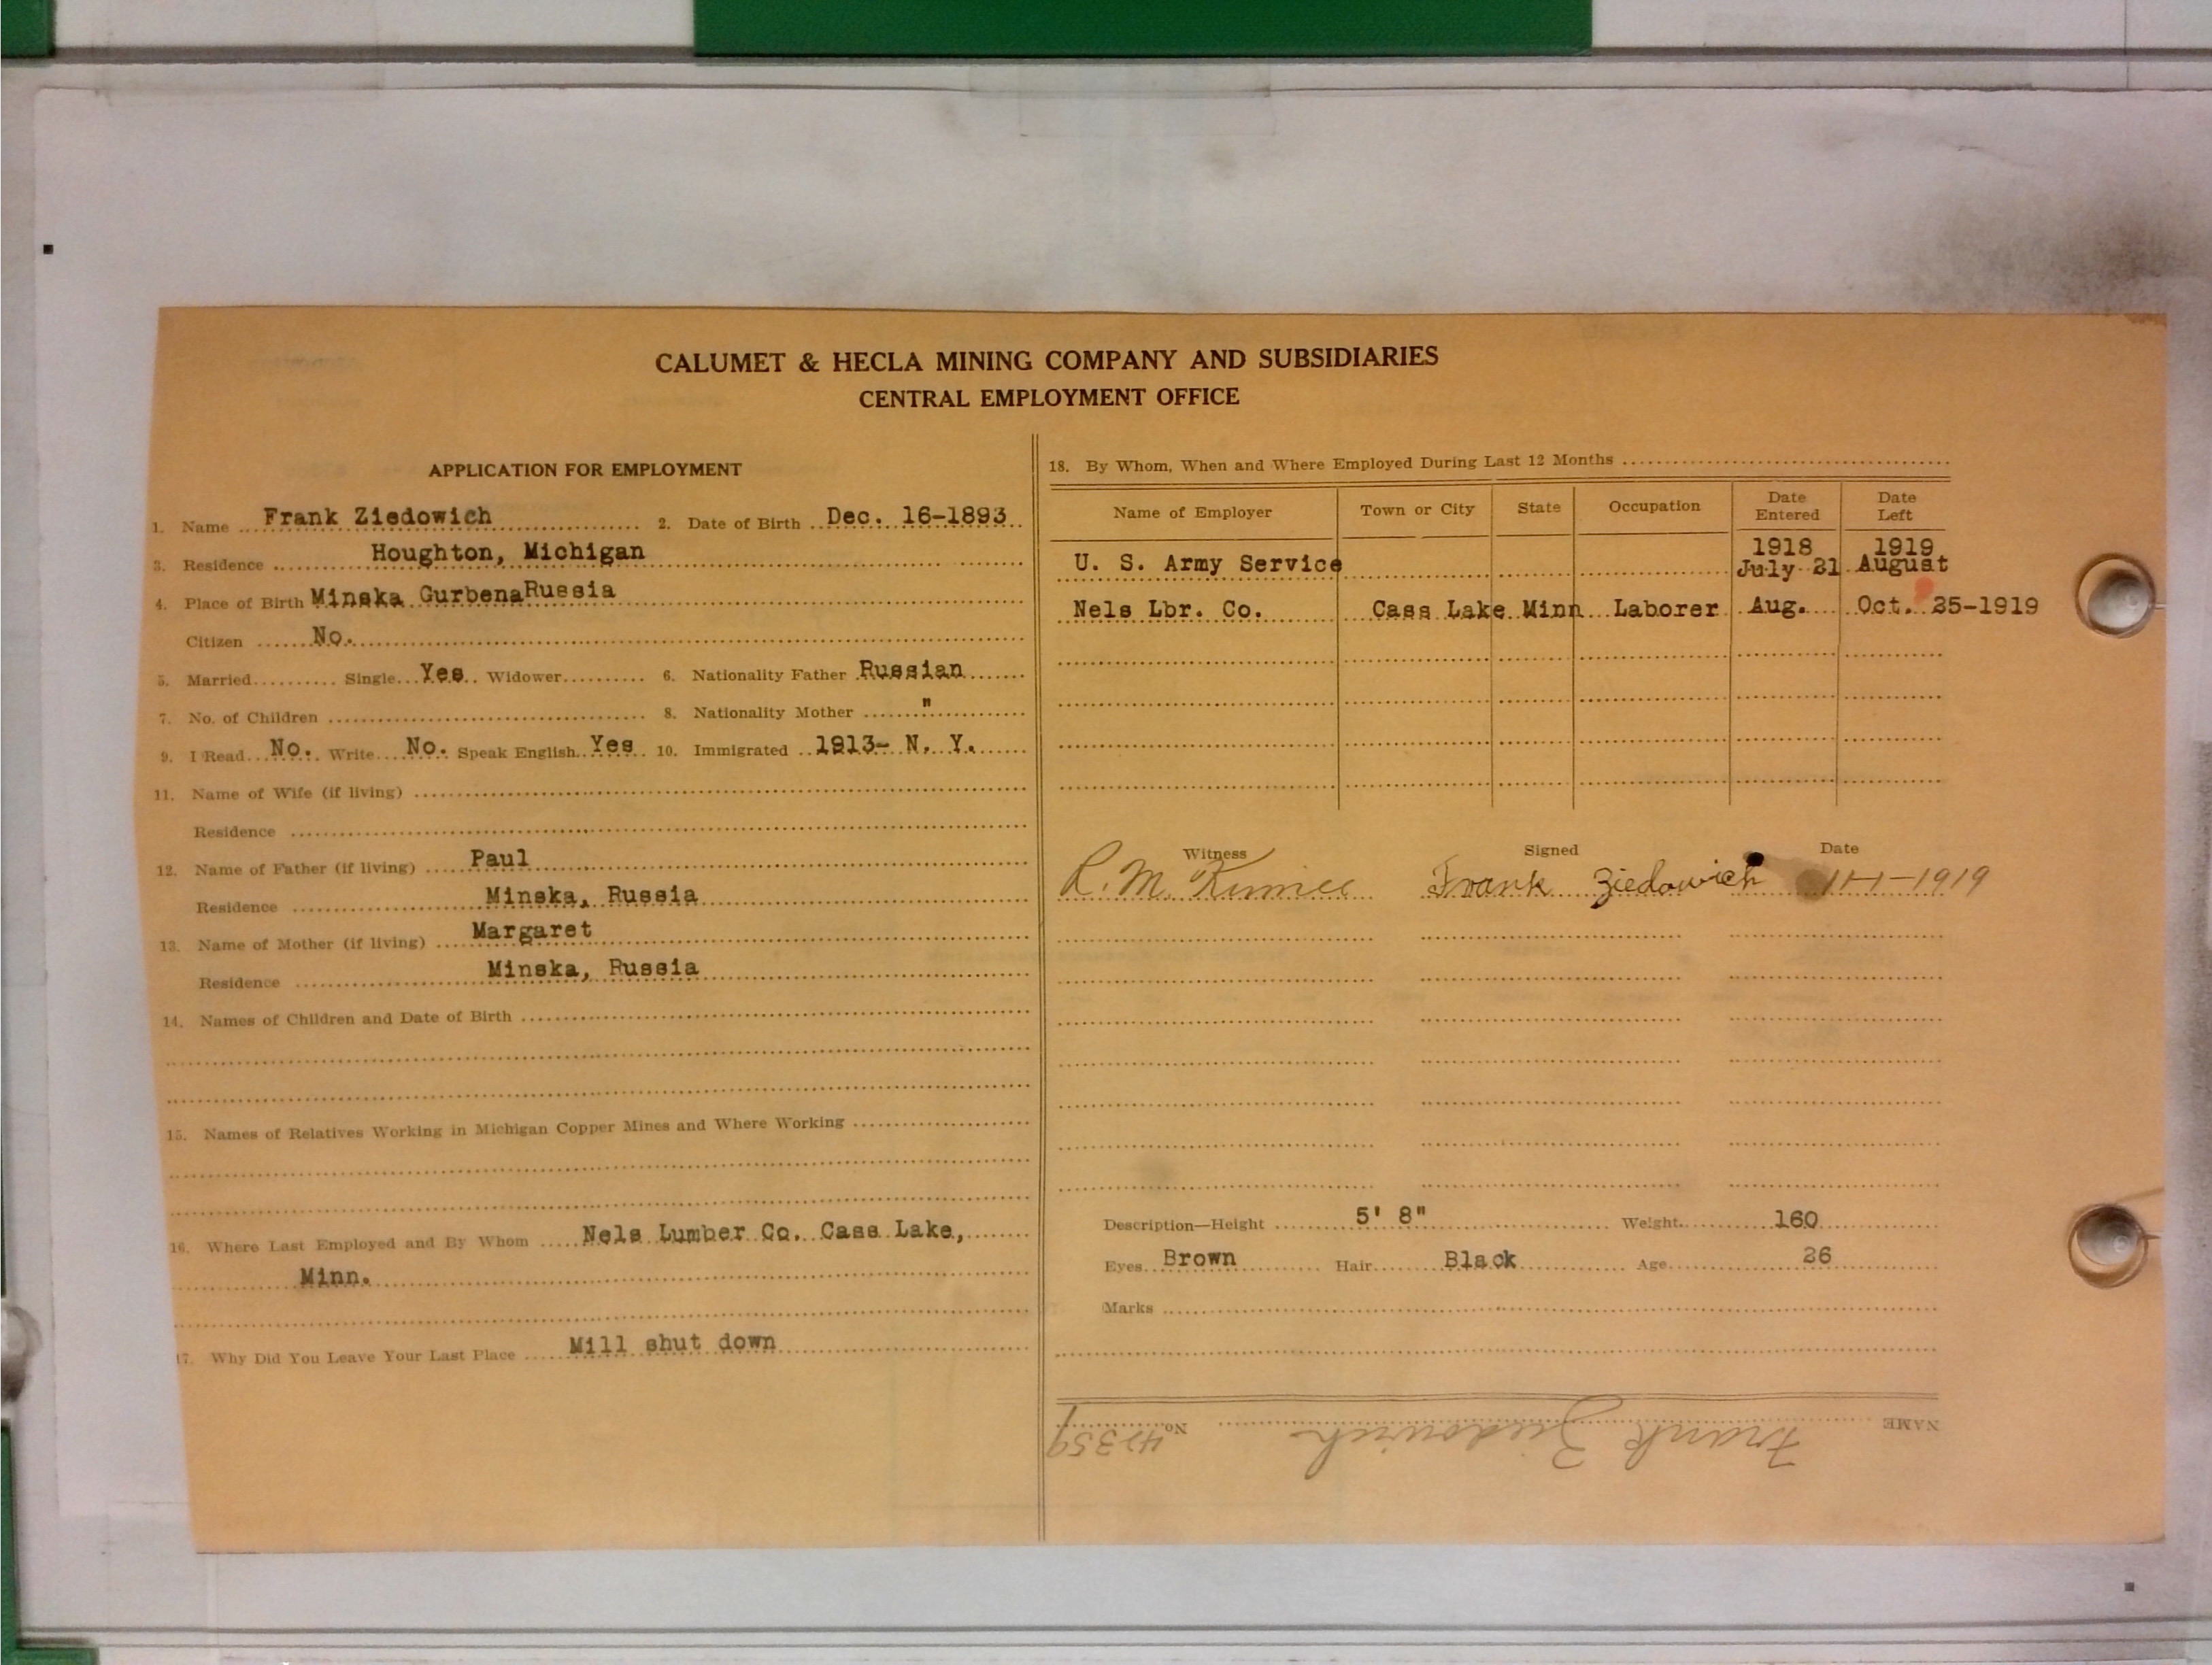 CALUMET & HECLA MINING COMPANY AND SUBSIDIARIES
CENTRAL EMPLOYMENT OFFICE
APPLICATION FOR EMPLOYMENT
1. Name Frank Ziedowich 2. Date of Birth Dec. 16-1893
3. Residence Houghton, Michigan
4. Place of Birth Minska Gurbena Russia
Citizen No.
5. Married Single Yes Widower 6. Nationality Father Russian
7. No. of Children 8. Nationality Mother "
9. I Read No. Write No. Speak English Yes 10. Immigrated 1913- N. Y.
11. Name of Wife (if living)
Residence
12. Name of Father (if living) Paul
Residence Minska, Russia
13. Name of Mother (if living) Margaret
Residence Minska, Russia
14. Names of Children and Date of Birth
15. Names of Relatives Working in Michigan Copper Mines and Where Working
16. Where Last Employed and By Whom Nels Lumber Co. Cass Lake,
Minn.
17. Why Did You Leave Your Last Place Mill shut down
18. By Whom, When and Where Employed During Last 12 Months
Name of Employer Town or City State Occupation Date Entered Date Left
1918 1919
U. S. Army Service July 21 August
Nels Lbr. Co. Cass Lake Minn Laborer Aug. Oct. 25-1919
Witness Signed Date
R. M. Frank Ziedowich 11-1-1919
Description—Height 5' 8" Weight 160
Eyes Brown Hair Black Age 26
Marks
NAME Frank Ziedowich No.